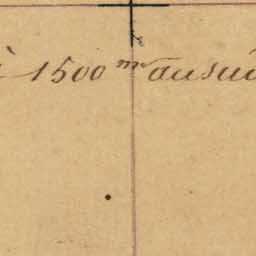 à 1500 m au sud